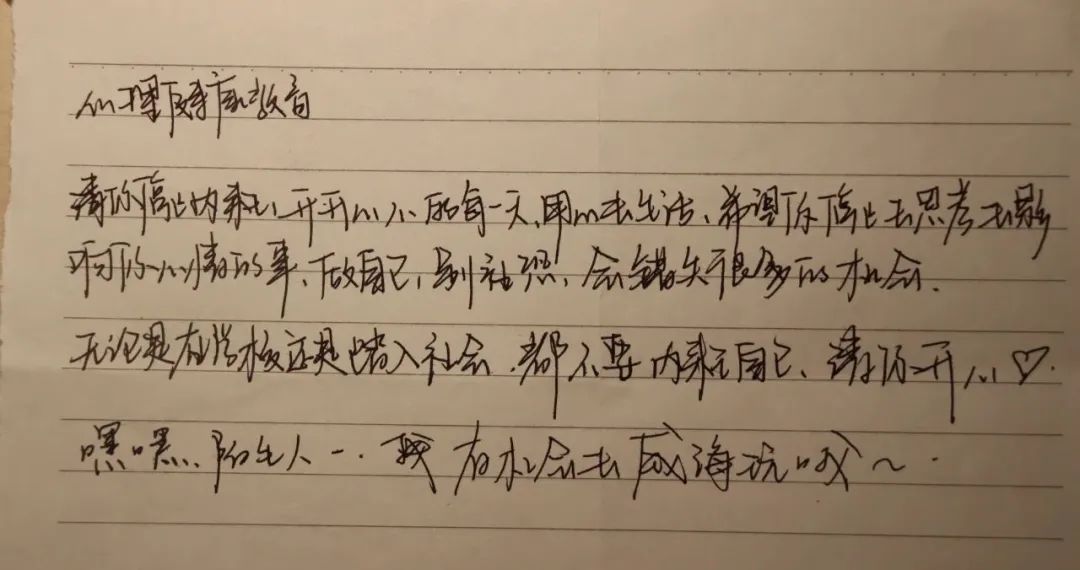 心理健康教育
请你停止内耗、开开心心的每一天,用心去生活、希望你停止去思考去影
响你心情的事、做自己,别社恐,会错失很多的机会.
无论是在学校还是踏入社会.都不要内耗自己、请你开心♡.
嘿嘿.陌生人一.我有机会去威海玩哦~.